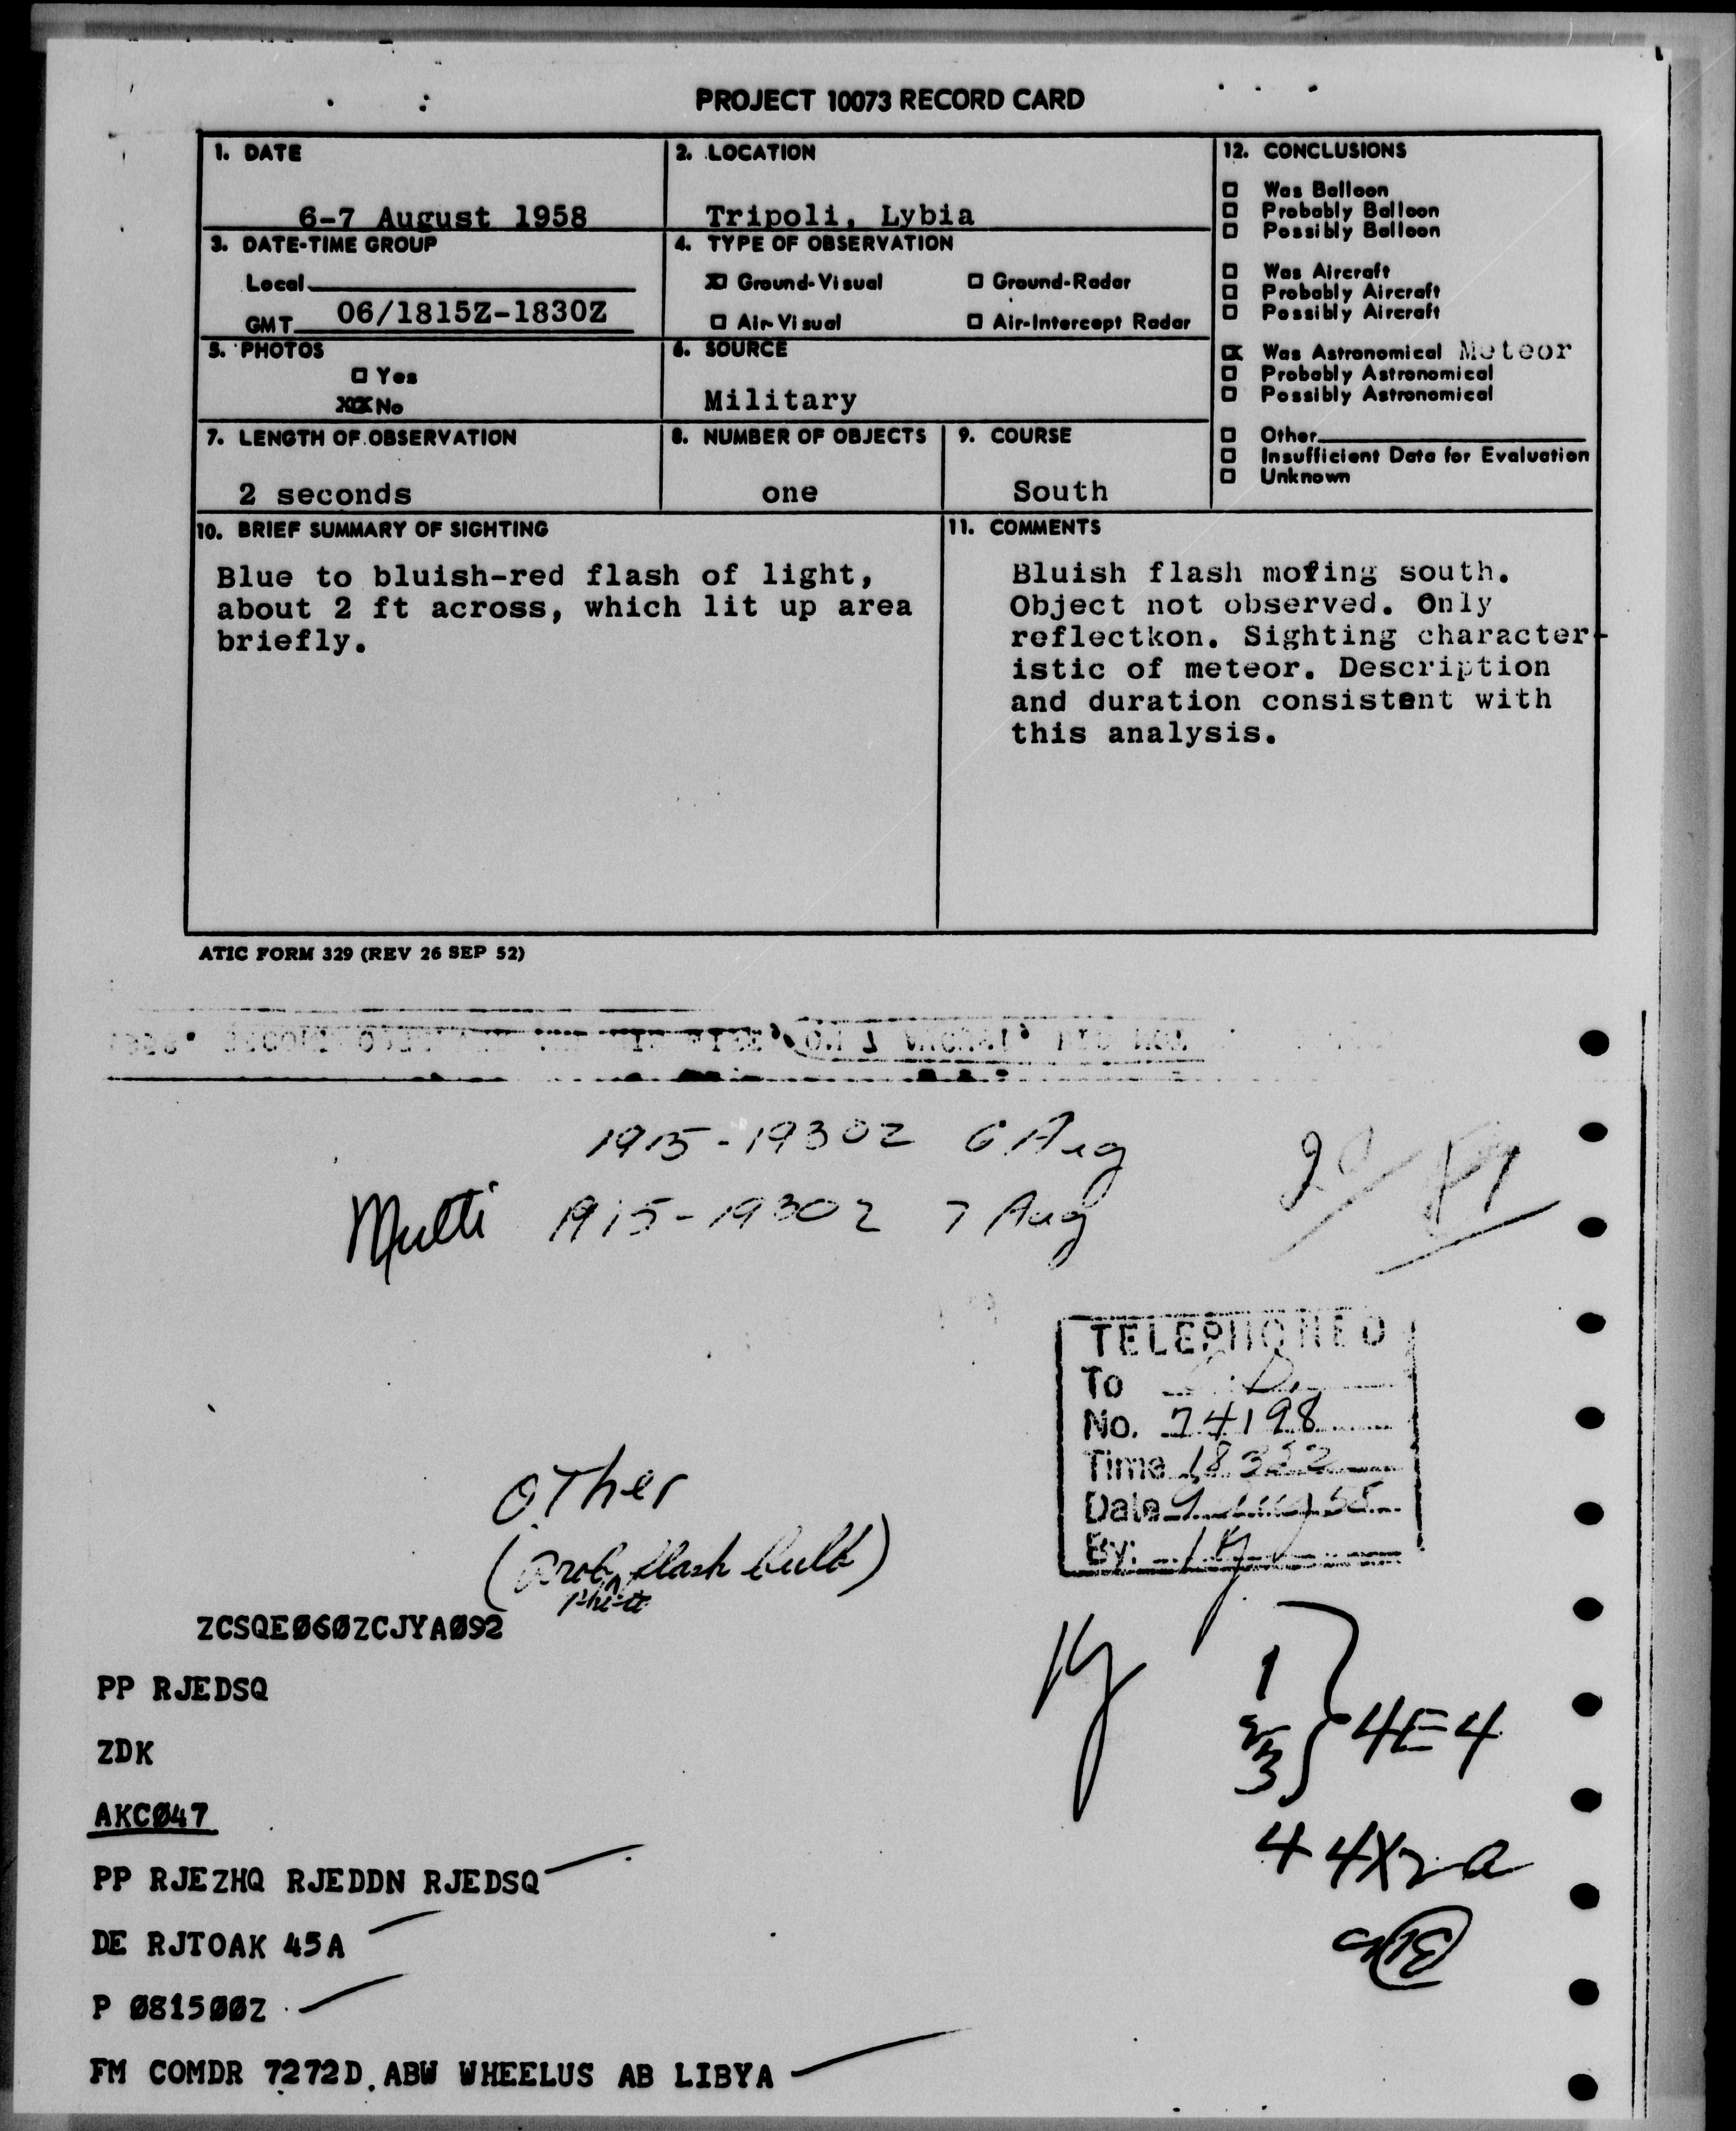 PROJECT 10073 RECORD CARD
1. DATE
6-7 August 1958
2. LOCATION
Tripoli, Lybia
3. DATE-TIME GROUP
Local
GMT 06/1815Z-1830Z
4. TYPE OF OBSERVATION
Ground-Visual
Ground-Radar
Air-Visual
Air-Intercept Radar
5. PHOTOS
Yes
No
6. SOURCE
Military
7. LENGTH OF OBSERVATION
2 seconds
8. NUMBER OF OBJECTS
one
9. COURSE
South
12. CONCLUSIONS
Was Balloon
Probably Balloon
Possibly Balloon
Was Aircraft
Probably Aircraft
Possibly Aircraft
Was Astronomical Meteor
Probably Astronomical
Possibly Astronomical
Other
Insufficient Data for Evaluation
Unknown
10. BRIEF SUMMARY OF SIGHTING
Blue to bluish-red flash of light,
about 2 ft across, which lit up area
briefly.
11. COMMENTS
Bluish flash mofing south.
Object not observed. Only
reflectkon. Sighting character-
istic of meteor. Description
and duration consistent with
this analysis.
ATIC FORM 329 (REV 26 SEP 52)
1915-1930Z 6 Aug
Multi 1915-1930Z 7 Aug
TELEPHONED
To
No. 74198
Time
Date
By:
Other
(Prob flash bulb)
ZCSQEØ6ØZCJYAØ92
PP RJEDSQ
ZDK
AKCØ47
PP RJEZHQ RJEDDN RJEDSQ
DE RJTOAK 45A
P Ø815ØØZ
FM COMDR 7272D. ABW WHEELUS AB LIBYA
1
2
3
4E4
4 4X2a